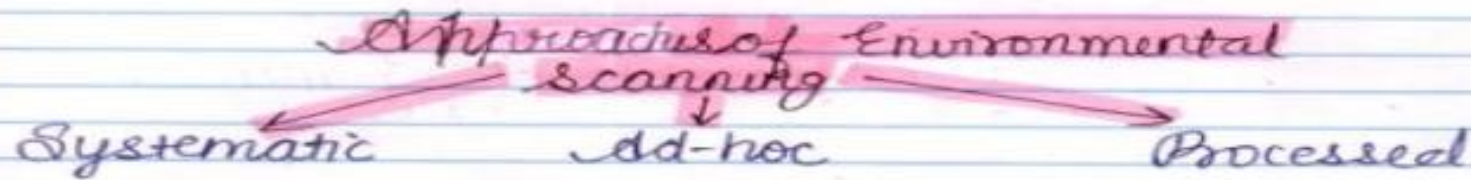 Approaches of Environmental
scanning
Systematic Ad-hoc Processed